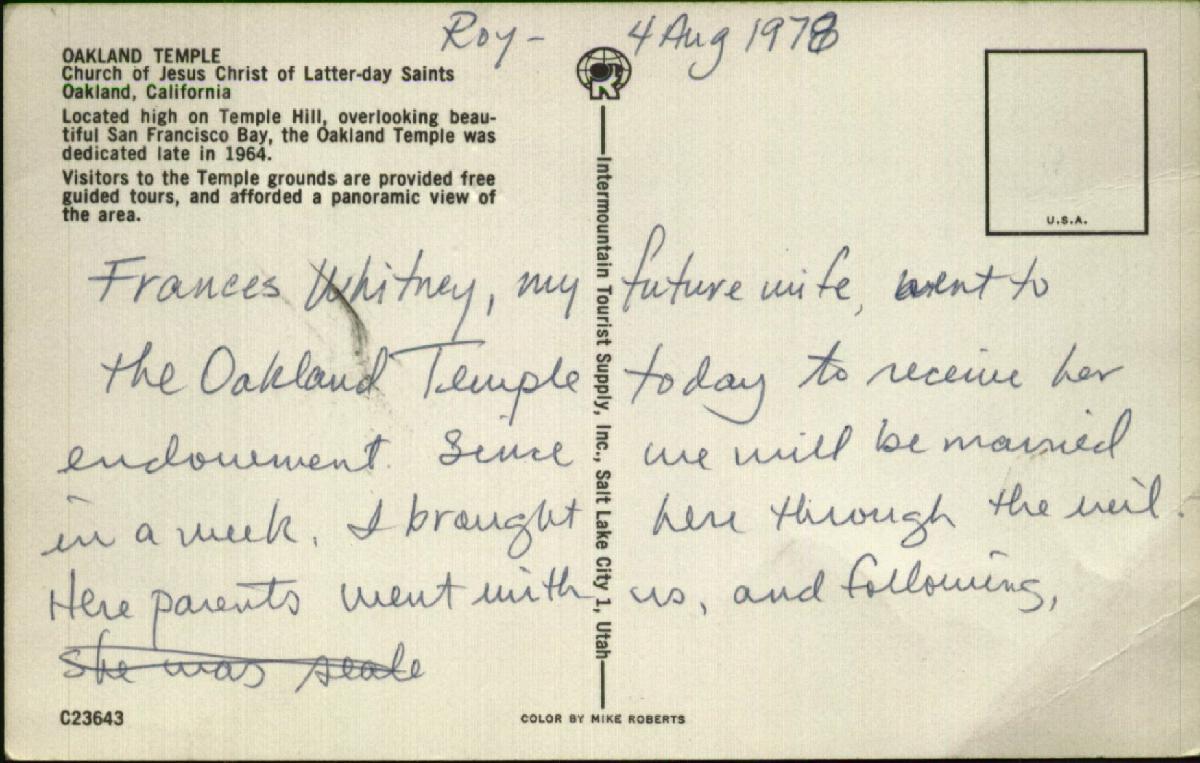 Roy- 4 Aug 1978
OAKLAND TEMPLE
Church of Jesus Christ of Latter-day Saints
Oakland, California
Located high on Temple Hill, overlooking beau-
tiful San Francisco Bay, the Oakland Temple was
dedicated late in 1964.
Visitors to the Temple grounds are provided free
guided tours, and afforded a panoramic view of
the area.
U.S.A.
Intermountain Tourist Supply, Inc., Salt Lake City 1, Utah
Frances Whitney, my future wife, went to
the Oakland Temple today to receive her
endowment. Since we will be married
in a week, I brought here through the veil.
Here parents went with us, and following,
she was seale
C23643
COLOR BY MIKE ROBERTS